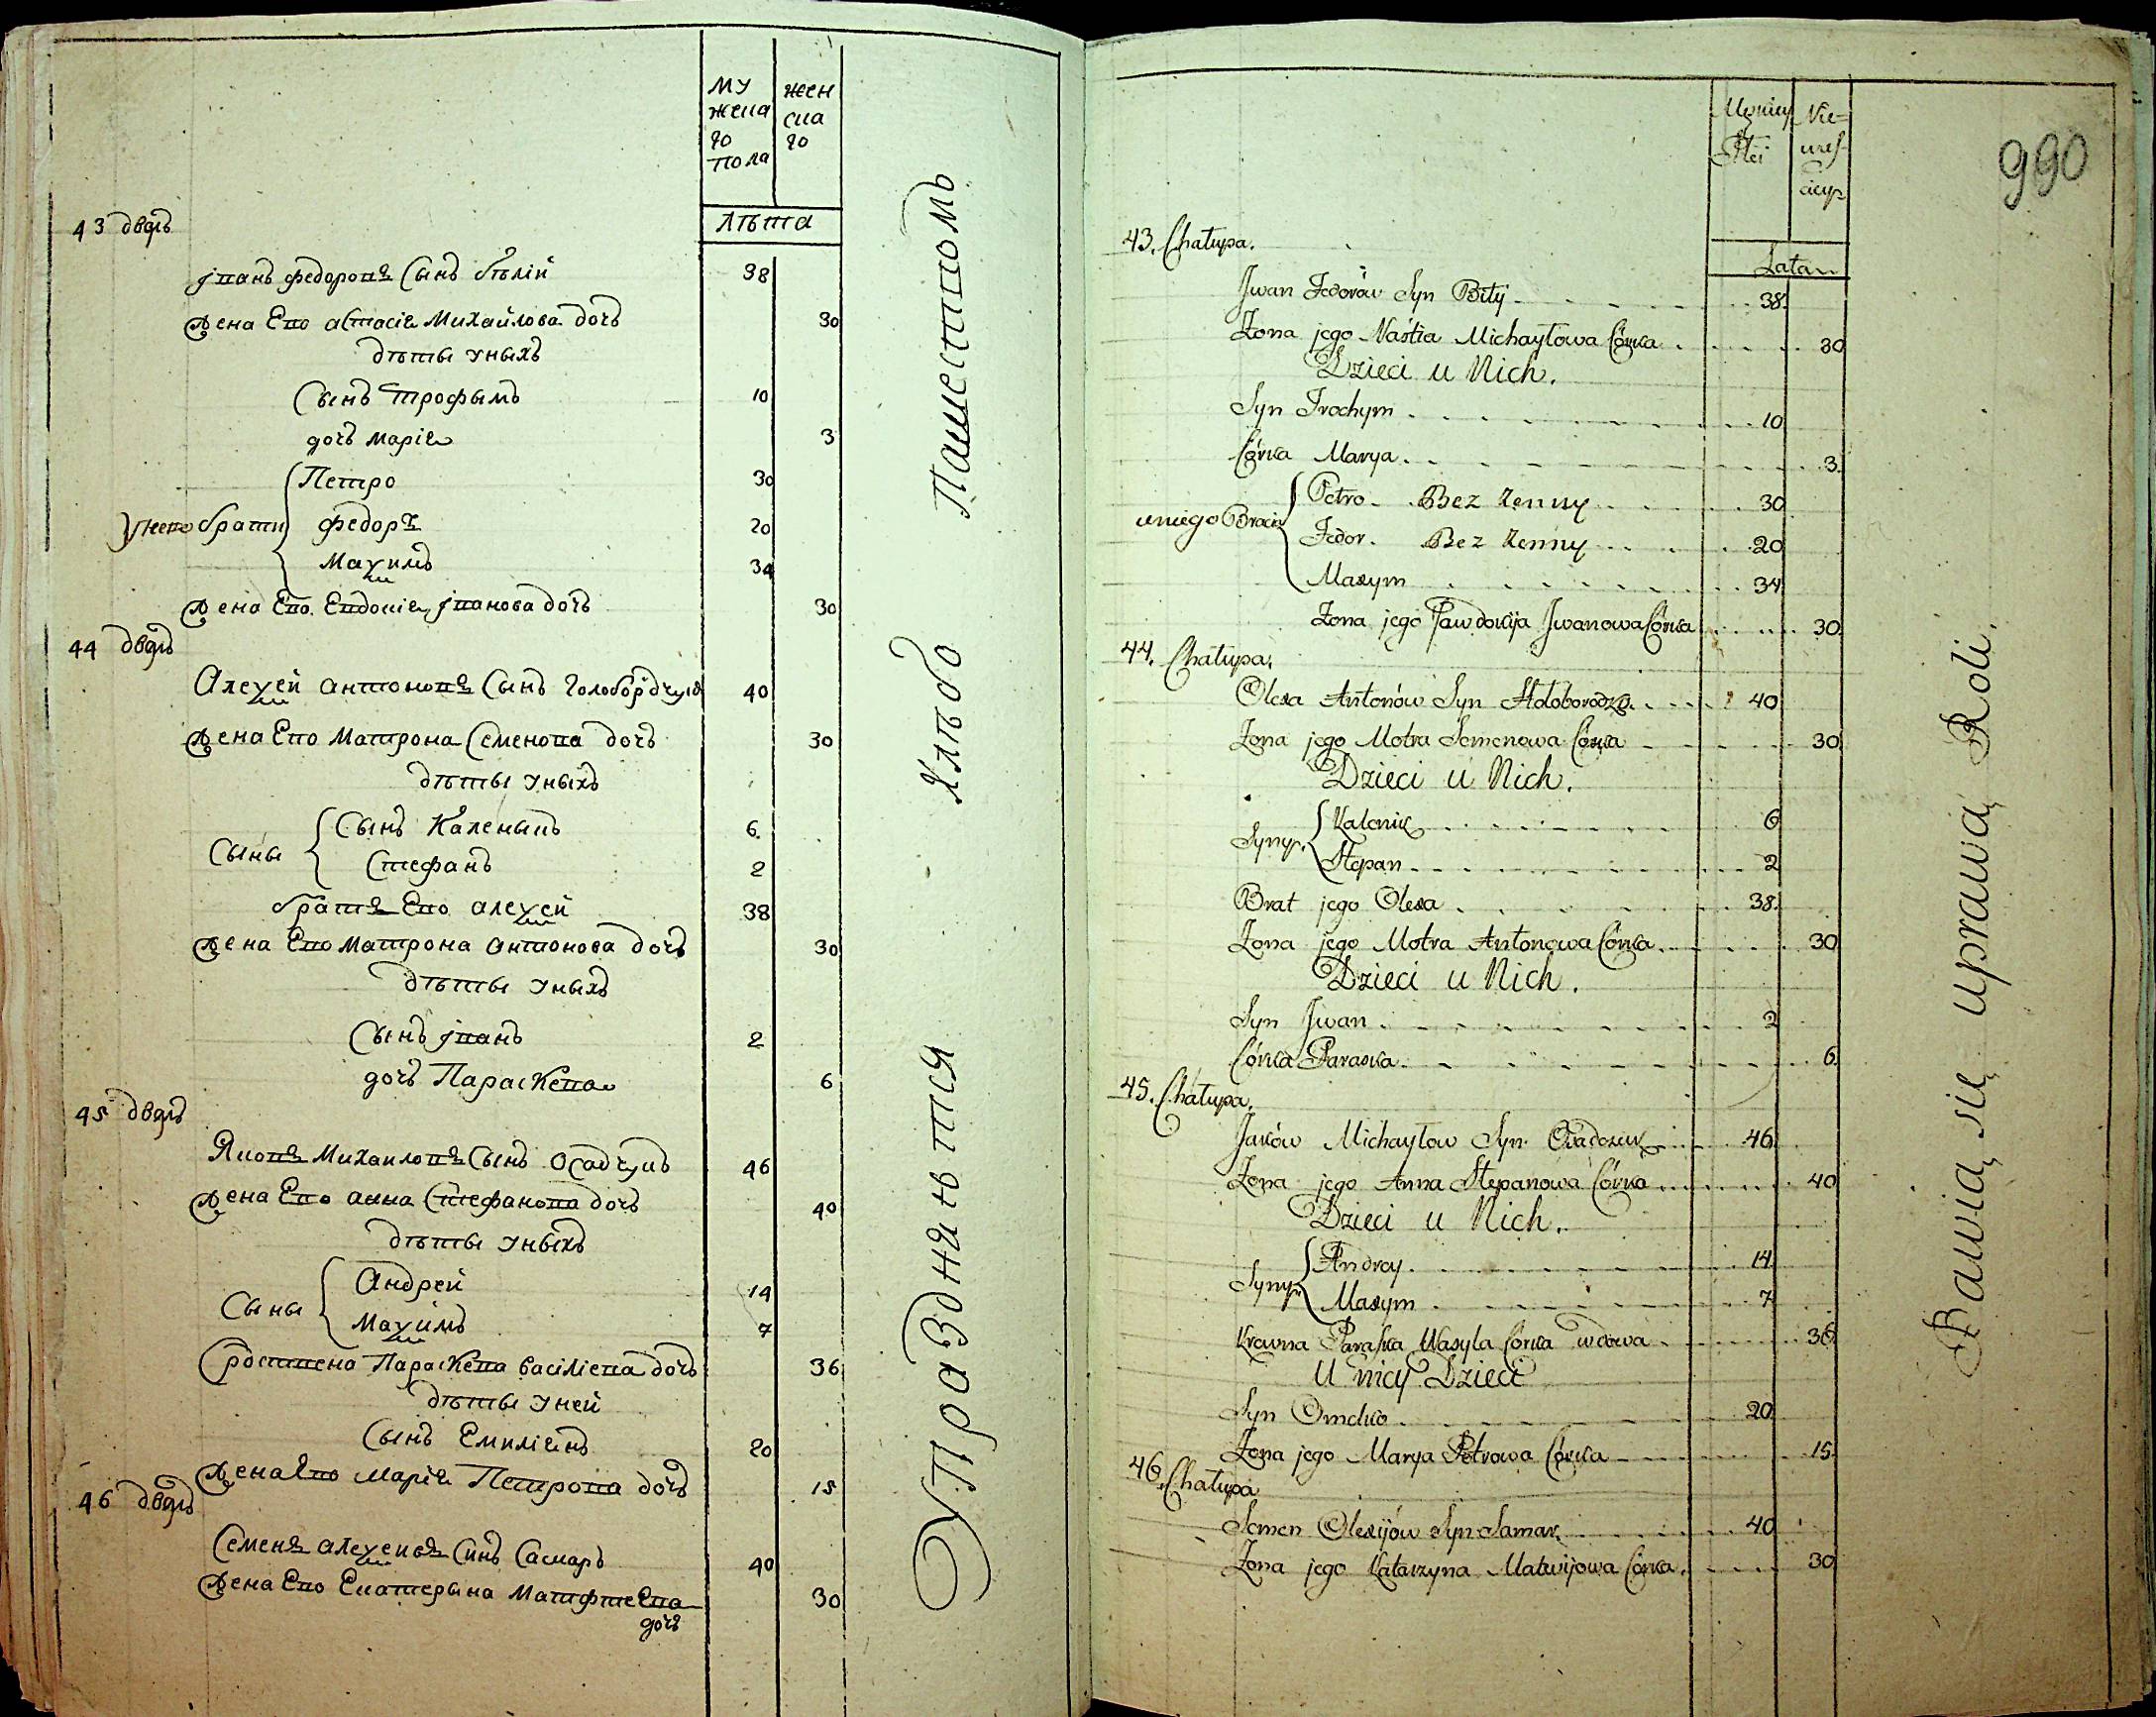 МУ
жеска
го
пола
жен
ска
го
лѣта
43 двор
Іванъ Федоровъ Сынъ бѣлій 38
Жена Его Астасія Михайлова дочь 30
дѣты уныхъ
Сынъ Трофымъ 10
дочь Марія 3
унего брати
Петро 30
Федоръ 20
Маҳимъ 34
Жена Его Евдокія Іванова дочь 30
44 двор
Алеҳей Антоновъ Сынъ Голобородчукъ 40
Жена Его Матрона Семенова дочь 30
дѣты уныхъ
Сыны
Сынъ Каленыкъ 6
Стефанъ 2
братъ Его Алеҳей 38
Жена Его Матрона Антонова дочь 30
дѣты уныхъ
Сынъ Іванъ 2
дочь Параскева 6
45 двор
Яковъ Михаиловъ Сынъ Осадчукъ 46
Жена Его Анна Стефанова дочь 40
дѣты уныхъ
Сыны
Андрей 14
Маҳимъ 7
Параскева Василіева дочь 36
дѣты уней
Сынъ Емиліянъ 20
Жена Его Марія Петрова дочь 15
46 двор
Семенъ Алеҳеивъ Синъ Самаръ 40
Жена Его Екатерына Матфтева 30
дочь
Упражняются хлѣбо Пашеством
990
Męzkiey
Płci
Nie=
wies-
ciey
Lata
43. Chałupa.
Jwan Fedorów Syn Biłÿ 38.
Zona jego Nastia Michayłowa Córka 30
Dzieci u Nich.
Syn Trochym 10
Córka Marya 3.
uniego Bracia
Petro. Bez Zenny 30
Fedor. Bez Zenny 20
Maxym 34
Zona jego Jawdokija Jwanowa Córka 30.
44. Chałupa.
Olexa Antonów Syn Hołoborodko 40
Zona jego Motra Semenowa Córka 30
Dzieci u Nich.
Syny.
Kalenik 6
Stepan 2
Brat jego Olexa 38.
Zona jego Motra Antonowa Córka 30
Dzieci u Nich.
Syn Jwan 2
Córka Paraska 6.
45. Chałupa.
Jaków Michayłow Syn 46
Zona jego Anna Stepanowa Córka 40
Dzieci u Nich.
Syny
Andrey 14
Maxym 7
Krewna Paraska Wasyla Corka wdowa 36.
U nicy Dzieci
Syn Omelko 20
Zona jego Marya Petrowa Córka 15.
46. Chałupa
Semen Olexijów Syn Samar 40
Zona jego Katarzyna Matwijowa Córka 30
Bawią się uprawą Roli.